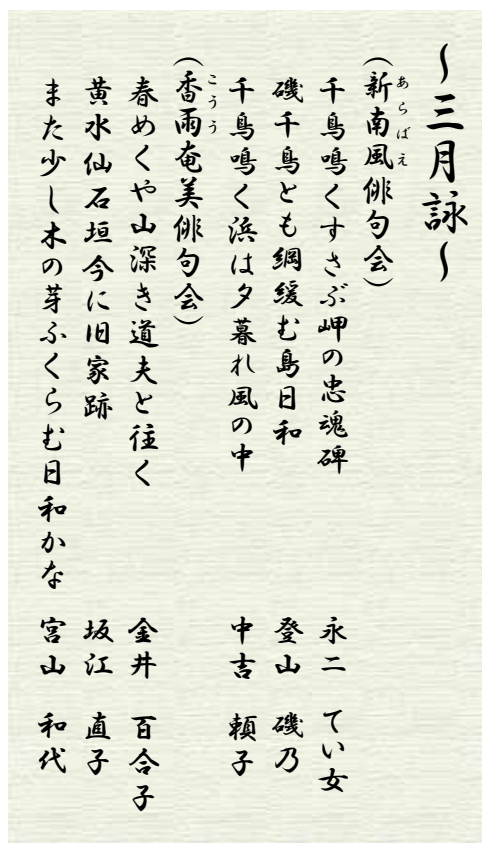 ～三月詠～
（新南風俳句会）
あらばえ
千鳥鳴くすさぶ岬の忠魂碑　永二　てい女
磯千鳥とも綱緩む島日和　登山　磯乃
千鳥鳴く浜は夕暮れ風の中　中吉　頼子
（香雨奄美俳句会）
こうう
春めくや山深き道夫と往く　金井　百合子
黄水仙石垣今に旧家跡　坂江　直子
また少し木の芽ふくらむ日和かな　宮山　和代